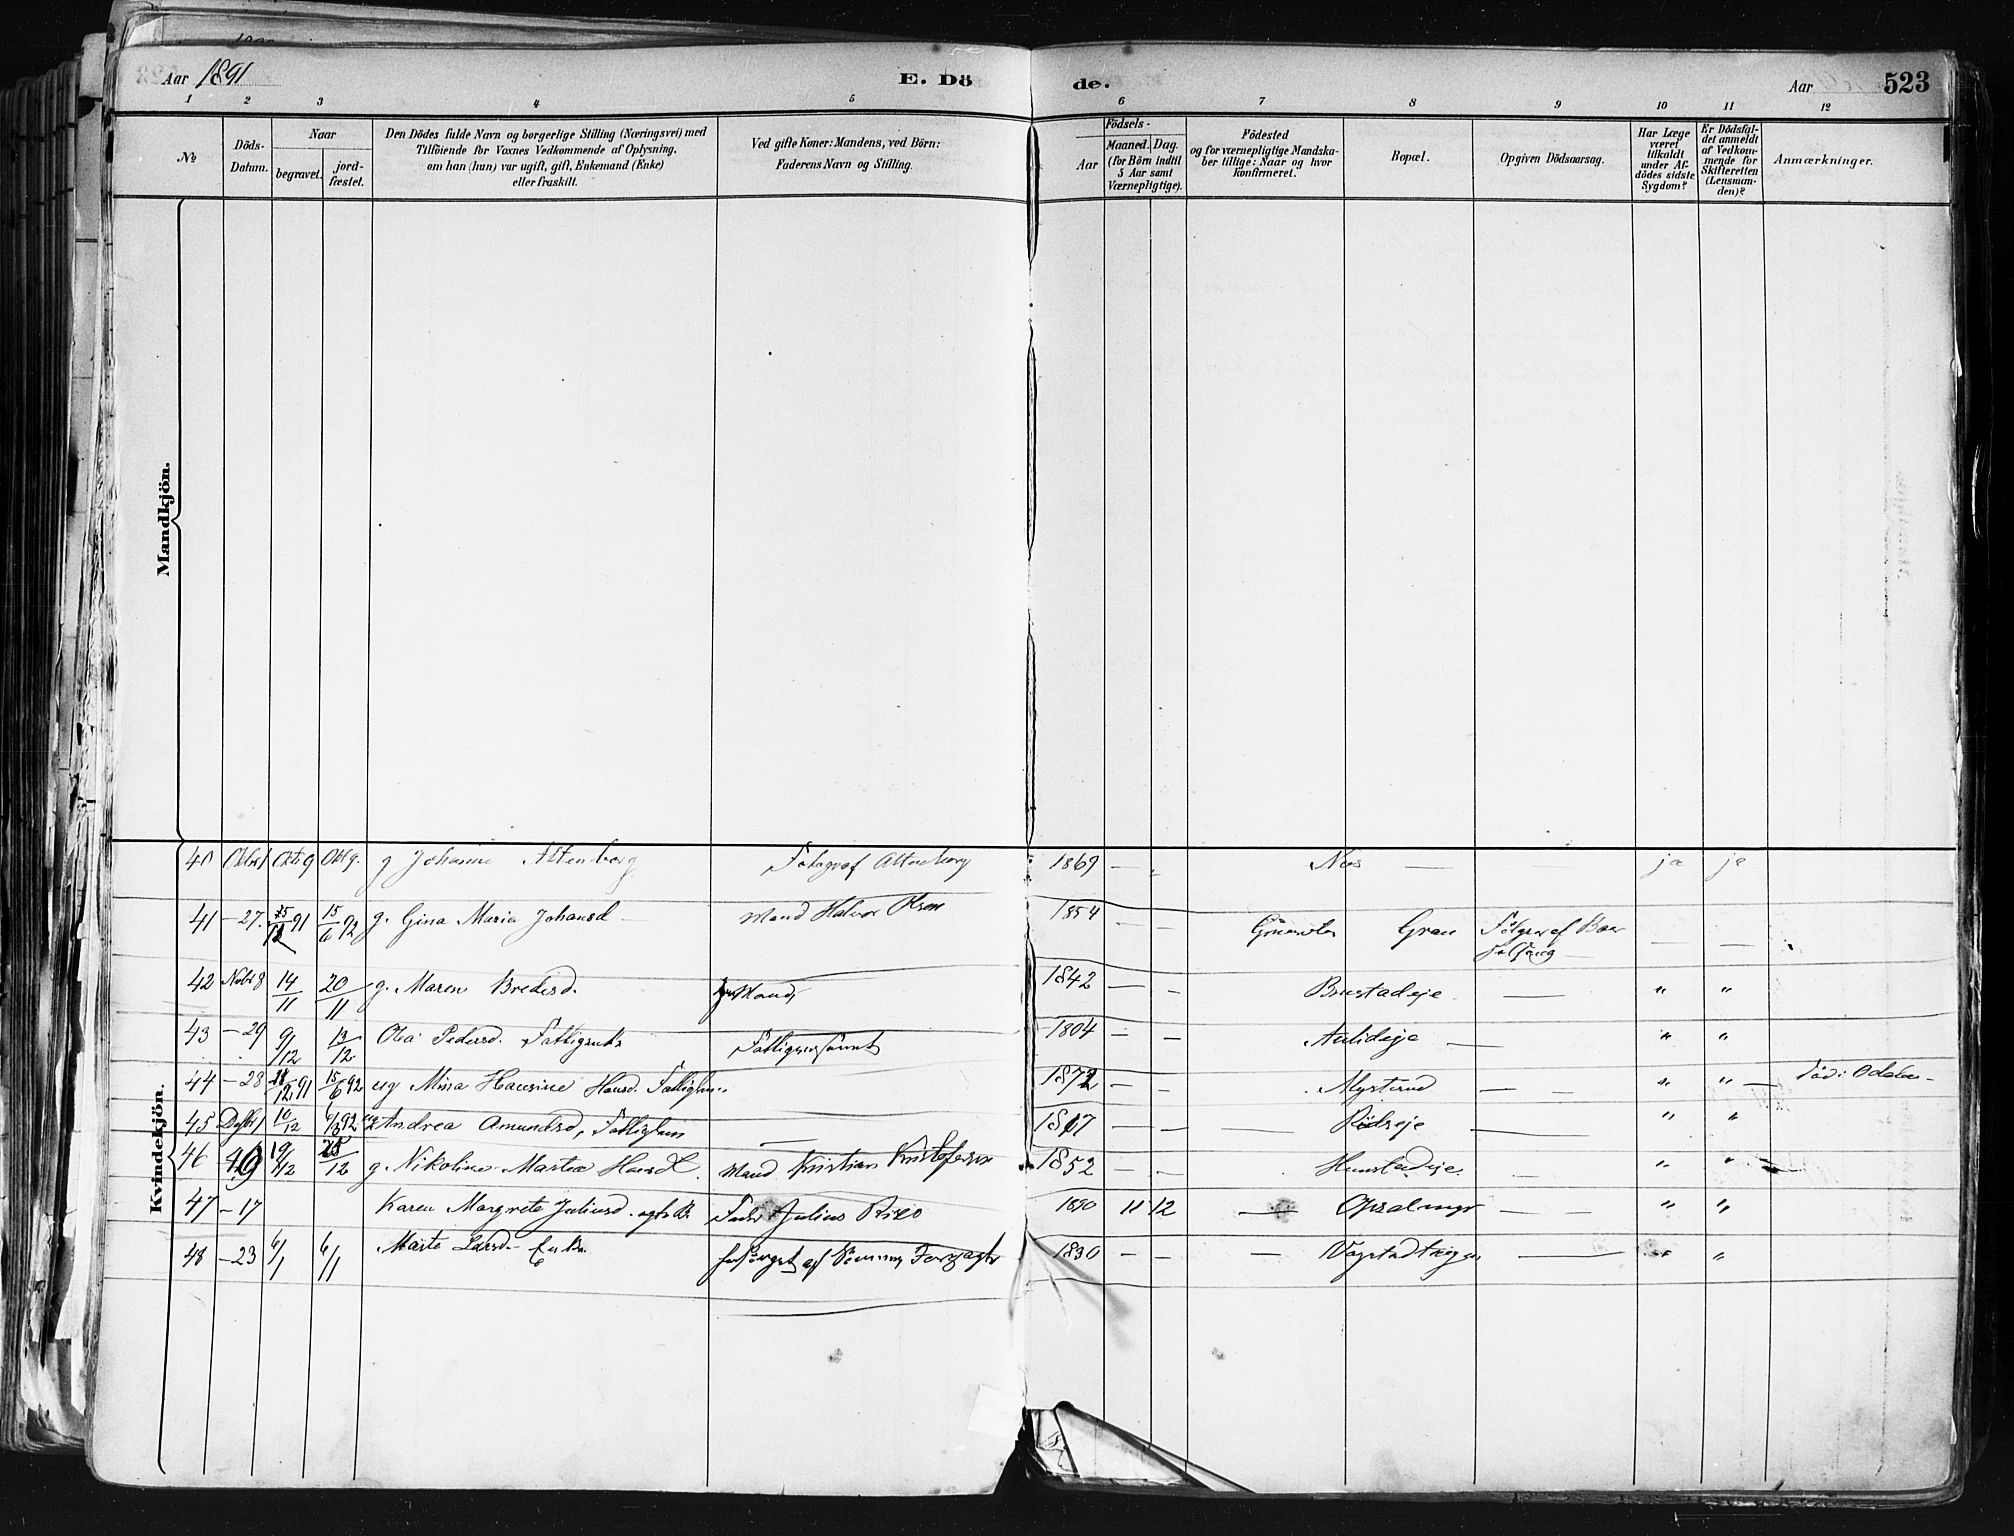 Aar 1891 E. Dö de. Aar 523
1 2 3 4 5 6 7 8 9 10 11 12
No
Döds-Datum.
Naar
begravet.
jord-fæstet.
Den Dödes fulde Navn og borgerlige Stilling (Næringsvei) med
Tilföiende for Voxnes Vedkommende af Oplysning,
om han (hun) var ugift, gift, Enkemand (Enke)
eller fraskilt.
Ved gifte Koner: Mandens, ved Börn:
Faderens Navn og Stilling.
Födsels-
Aar
Maaned. Dag.
(for Börn indtil
5 Aar samt
Værnepligtige).
Födested
og for værnepligtige Mandska-
ber tillige: Naar og hvor
Konfirmeret.
Bopæl.
Opgiven Dödsaarsag.
Har Læge
været
tilkaldt
under Af-
dödes sidste
Sygdom?
Er Dödsfal-
det anmeldt
af Vedkom-
mende for
Skifteretten
(Lensman-
den)?
Anmærkninger.
Mandkjön.
Kvindekjön.
40 Oktbr Oktr 9 Okt 9. g Johanne Altenborg Fotograf Altenborg 1869 — Næs — ja ja
41 — 27. 91 15/6 92 g. Gina Marie Johansd — Mand Halvor Olsen 1854 — — Gran Fölger af Bar
— —
42 Novbr 8 14/11 20/11 g. Maren Bredesd. Mand 1842 — — Brustadeje — " "
43 — 29 9/12 13/12 Olea Pedersd. Fattigenke Fattigforsörnet 1804 — — Aulideje — " "
44 — 28 12 91 15/6 92 ug Mina Hansine Hansd. Fattiglem 1872 — — Mysterud — " " — död i
45 Dcbr 1 10/12 92 ug Andrea Amundsd, Fattiglem — 1817 — — — — " "
46 19/12 25/12 g. Nikoline Martea Hansd. Mand Kristian Kristofersen 1852 — — Hunstadeje " "
47 — 17 Karen Margrete Juliusd. ægte B. Fader Julius 1890 11 12 — Opsalmyr — — " "
48 — 23 6/1 6/1 Marte Larsd — Enke forsörget af 1830 — — — — " "